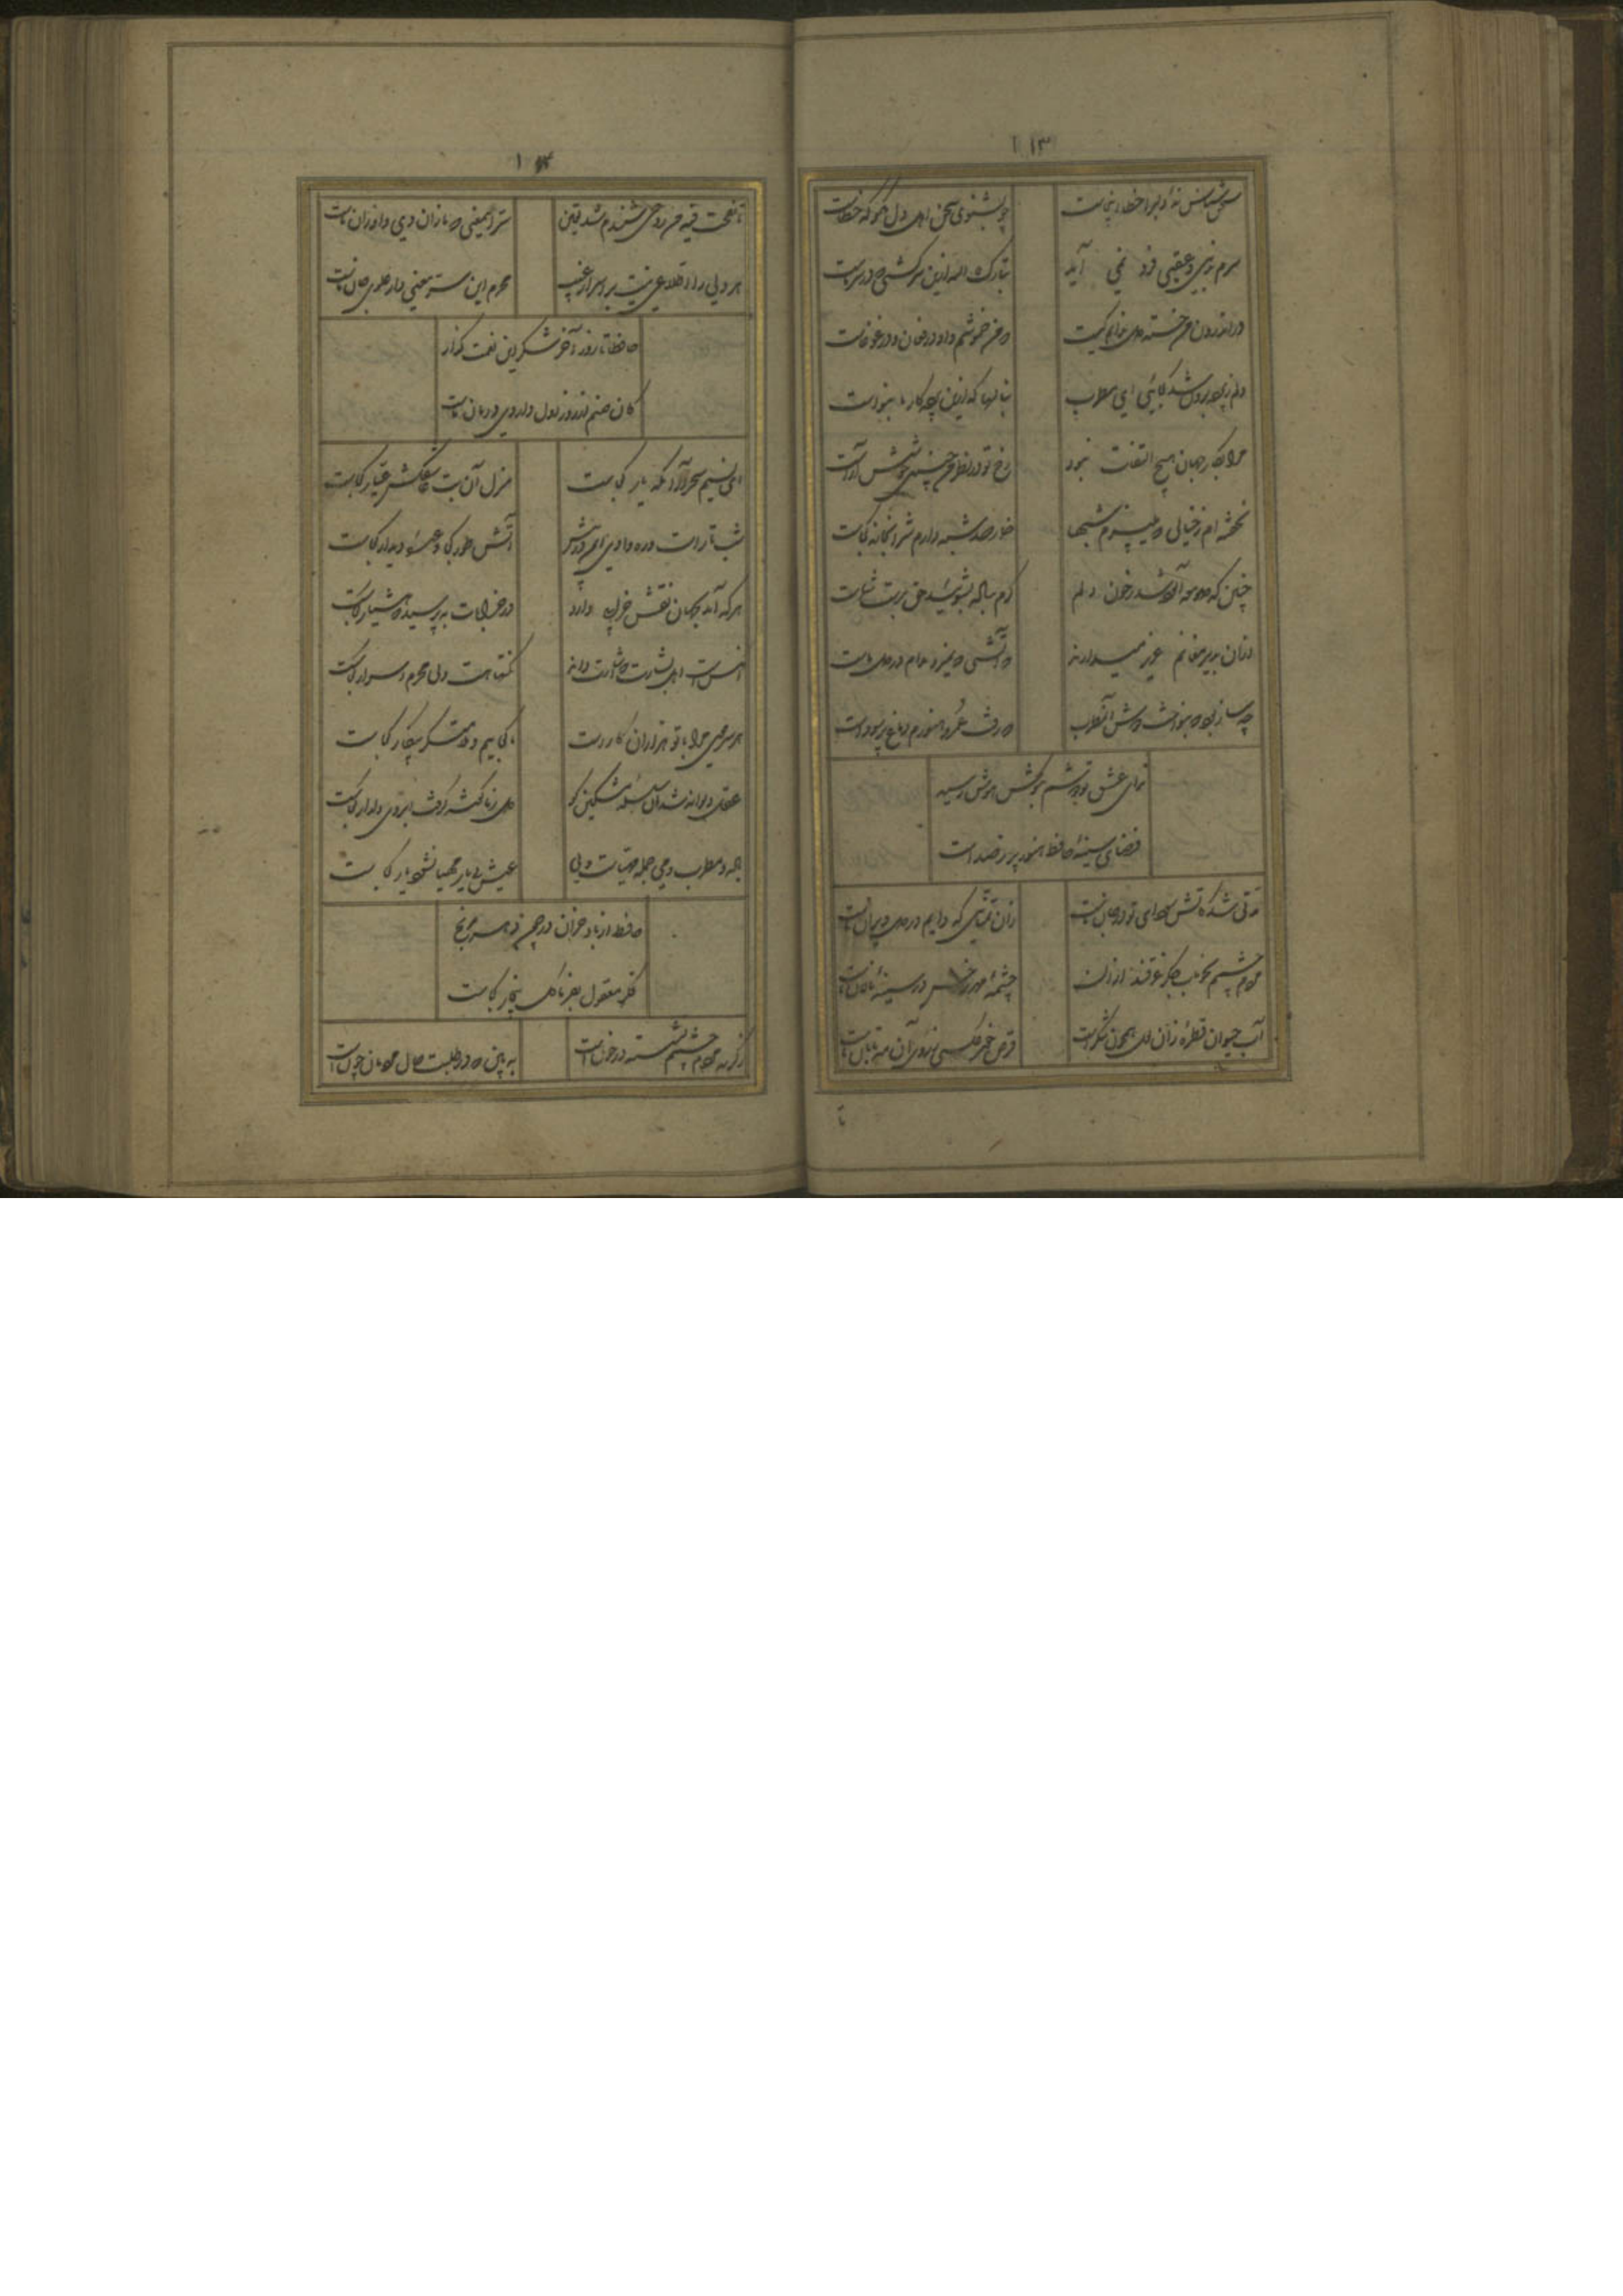 ۱۱۳
چو بشنوی سخن اهل دل مگو که خطاست
سخن شناس نهٔ دلبرا خطا اینجاست
سرم بدنیی و عقبی فرو نمی آید
تبارک الله ازین سر که در سر ماست
در اندرون من خسته دل ندانم کیست
که من خموشم و او در فغان و در غوغاست
دلم ز پرده برون شد کجائی ای مطرب
بنال هان که ازین پرده کار ما بنواست
مرا بکار جهان هیچ التفات نبود
رخ تو در نظر من چنین خوشش آراست
نخفته ام ز خیالی که میپزم شبها
خمار صد شبه دارم شرابخانه کجاست
چنین که صومعه آلوده شد ز خون دلم
گرم بباده بشوئید حق بدست شماست
از آن بدیر مغانم عزیز میدارند
که آتشی که نمیرد مدام در دل ماست
چه ساز بود که بنواخت دوش آن مطرب
که رفت عمر و هنوزم دماغ پر ز هواست
ندای عشق تو دوشم بگوش هوش رسید
فضای سینهٔ حافظ هنوز پر ز صداست
مدتی شد کاتش سودای تو در جان ماست
زان تمنائی که دایم در دل ویران ماست
مردم چشمم بخوناب جگر غرقند از آن
چشمهٔ مهر رخش در سینهٔ نالان ماست
آب حیوان قطرهٔ زان لعل همچون شکر است
قرص خور عکسی ز روی آن مه تابان ماست
تا
۱۱۴
تا نفخت فیه من روحی شنیدم شد یقین
هر دلی را اطلاعی نیست بر اسرار غیب
محرم این سر معنی دار علوی جان ماست
حافظا تا روز آخر شکر این نعمت گذار
کان صنم از روز اول داروی درمان ماست
ای نسیم سحر آرامگه یار کجاست
منزل آن مه عاشق کش عیار کجاست
شب تار است و ره وادی ایمن در پیش
آتش طور کجا وعدهٔ دیدار کجاست
هر که آمد بجهان نقش خرابی دارد
در خرابات بپرسید که هشیار کجاست
آنکس است اهل بشارت که اشارت داند
نکتها هست ولی محرم اسرار کجاست
هر سر موی مرا با تو هزاران کار است
ما کجاییم و ملامتگر بیکار کجاست
عقل دیوانه شد آن سلسلهٔ مشکین کو
دل ز ما گوشه گرفت ابروی دلدار کجاست
باده و مطرب و می جمله مهیاست ولی
عیش بی یار مهیا نشود یار کجاست
حافظ از باد خزان در چمن دهر مرنج
فکر معقول بفرما گل بیخار کجاست
ز گریه مردم چشمم نشسته در خونست
به بین که در طلبت حال مردمان چونست